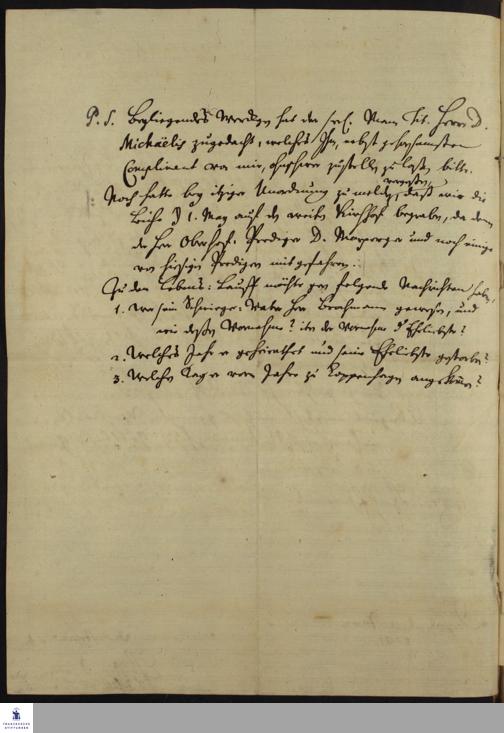 P. S. Beyliegendes Werckgen hat der sel. Mann Tit. Herrn D.
Michaëlis zugedacht, welches Ihm, nebst gehorsamsten
Compliment von mir, ohnschwer zustellen zu lassen bitte.
Noch hatte bey itziger Unordnung zu melden vergessen, daß wir die
Leiche d 1. May auf den weißen Kirchhof begraben, da denn
der Herr Oberhof-Prediger D. und noch einige
von hiesigen Predigern mit gefahren.
Zu dem Lebens-Lauff möchte gern folgende Nachrichten haben,
1. Wer sein Schwieger-Vater Herr Brohmann gewesen, und
wie dessen Vornahme? it. der Vornahme d Eheliebste?
2. Welches Jahr er geheirathet und seine Eheliebste gestorben?
3. Welchen Tag er vom Jahre zu Koppenhagen angekommen?
FRANCKESCHE
STIFTUNGEN